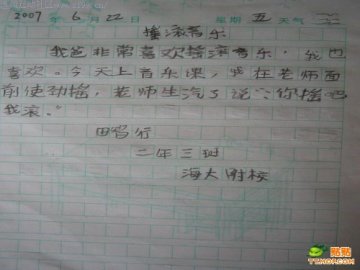 2007年6月22日 星期五 天气
摇滚音乐
我爸非常喜欢摇滚音乐，我也
喜欢。今天上音乐课，我在老师面
前使劲摇，老师生汽了说：“你摇吧
我滚。”
二年三班
海大附校